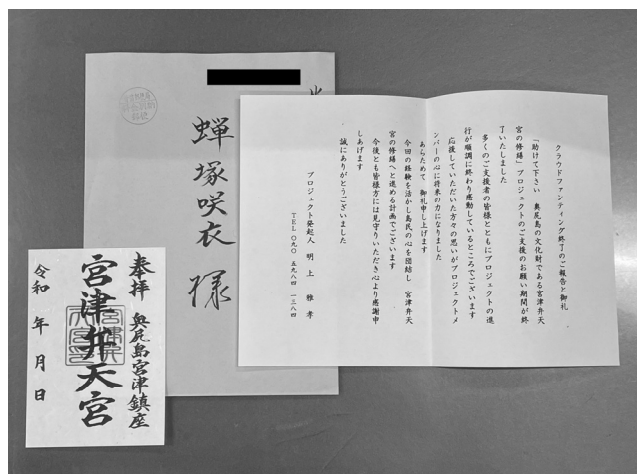 蝉塚咲衣様
クラウドファンディング終了のご報告と御礼
「助けて下さい　奥尻島の文化財である宮津弁天
宮の修繕」プロジェクトのご支援のお願い期間が終
了いたしました
多くのご支援者の皆様とともにプロジェクトの進
行が順調に終わり感動しているところでございます
応援していただいた方々の思いがプロジェクトメ
ンバーの心に将来の力になりました
あらためて　御礼申し上げます
今回の経験を活かし島民の心を団結し　宮津弁天
宮の修繕へと進める計画でございます
今後とも皆様方には見守りいただき心より感謝申
しあげます
誠にありがとうございました
プロジェクト発起人　明上　雅孝
TEL 〇九〇　五九八四　一三八四
奉拝　奥尻島宮津鎮座
宮津弁天宮
令和　年　月　日